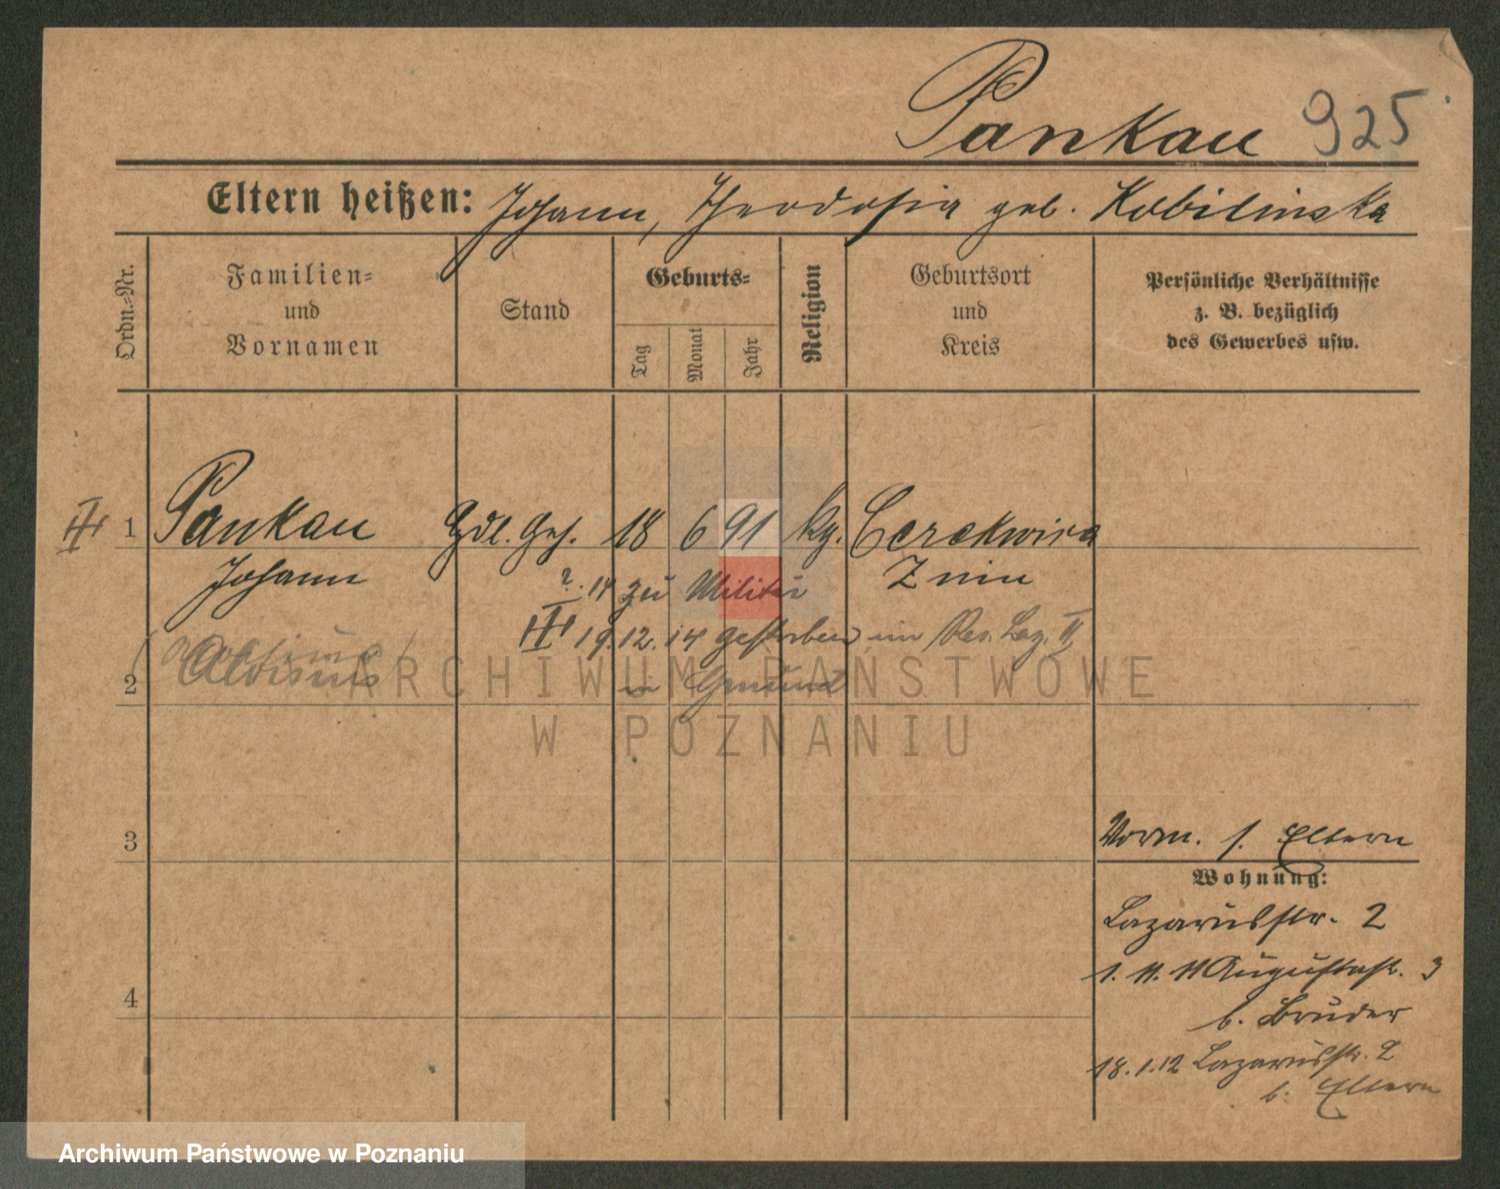 Pankau 925
Eltern heißen: Johann, Theodosia geb. Kobilinska
Ordn.-Nr.
Familien-
und
Vornamen
Stand
Geburts-
Tag
Monat
Jahr
Religion
Geburtsort
und
Kreis
Persönliche Verhältnisse
z. B. bezüglich
des Gewerbes usw.
III 1 Pankau Hdl. Geh. 18 6 91 kg. Cerekwica
Johann Znin
?.14 zu Militär
III 19.12.14 gestorben im Res. Laz. II
in Gmünd
2 Aloisius
ARCHIWUM PAŃSTWOWE
W POZNANIU
3
4
Vorm. s. Eltern
Wohnung:
Lazarusstr. 2
1. 11. 11 Augustastr. 3
b. Bruder
18.1.12 Lazarusstr. 2
b. Eltern
Archiwum Państwowe w Poznaniu